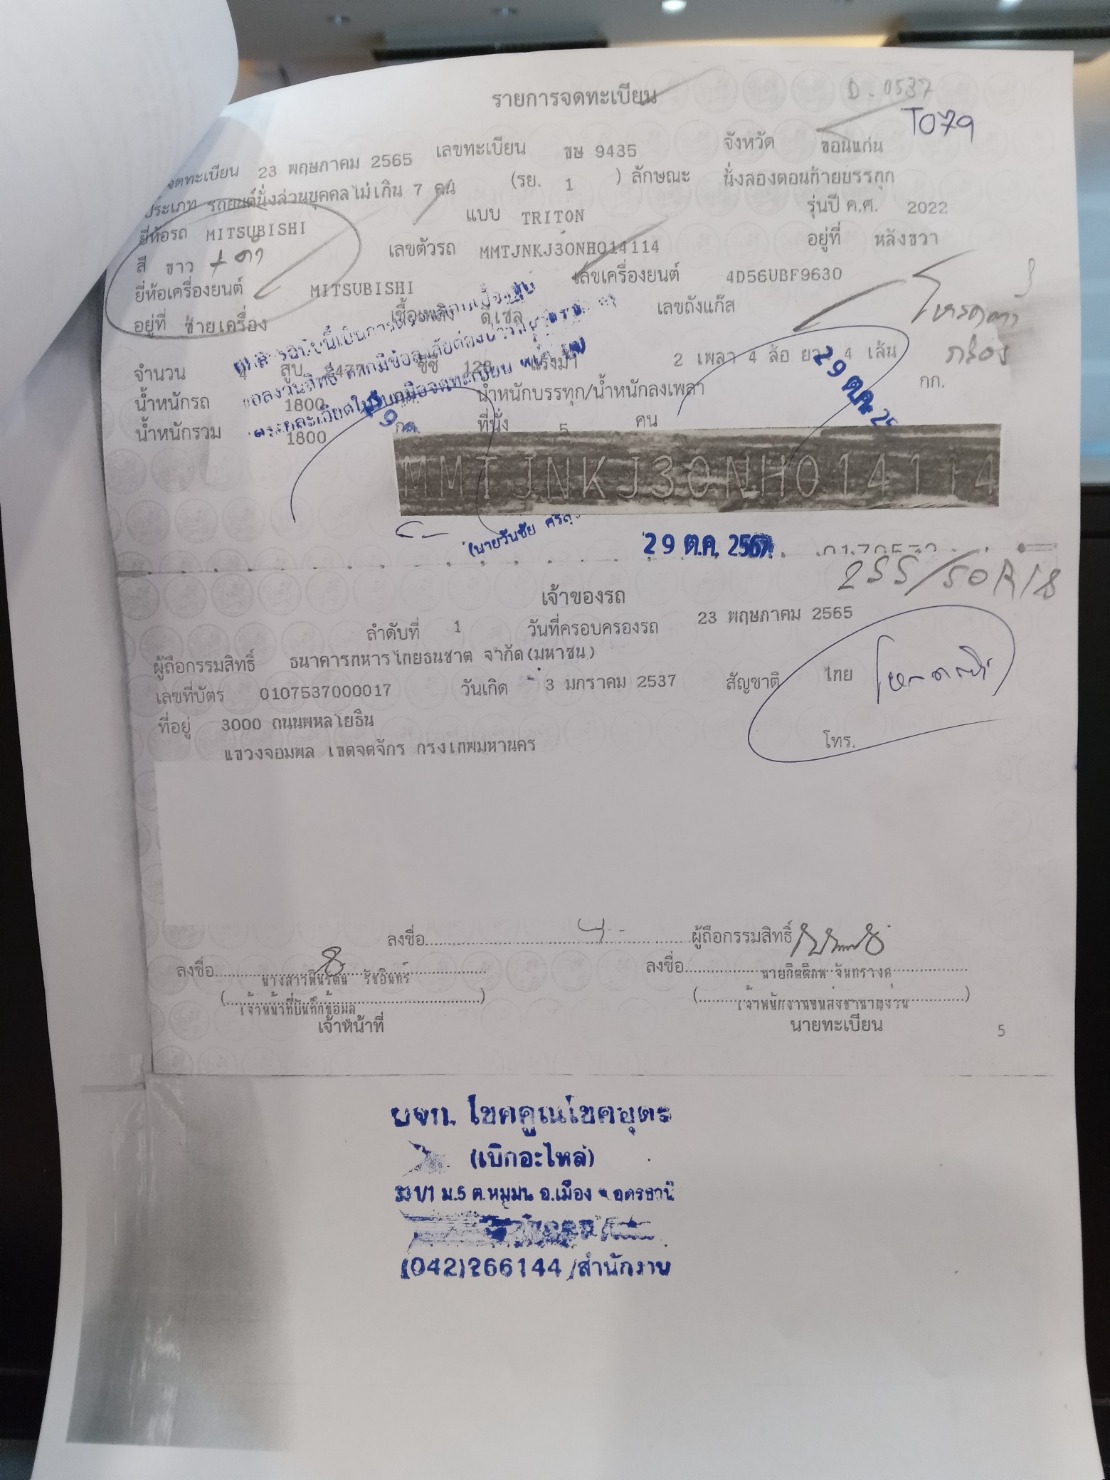 รายการจดทะเบียน
D-0537
T079
จดทะเบียน 23 พฤษภาคม 2565 เลขทะเบียน ขษ 9435 จังหวัด ขอนแก่น
ประเภท รถยนต์นั่งส่วนบุคคลไม่เกิน 7 คน (รย. 1 ) ลักษณะ นั่งสองตอนท้ายบรรทุก
ยี่ห้อรถ MITSUBISHI แบบ TRITON รุ่นปี ค.ศ. 2022
สี ขาว + ดำ เลขตัวรถ MMTJNKJ30NH014114 อยู่ที่ หลังขวา
ยี่ห้อเครื่องยนต์ MITSUBISHI เลขเครื่องยนต์ 4D56UBF9630
อยู่ที่ ซ้ายเครื่อง เชื้อเพลิง ดีเซล เลขถังแก๊ส
จำนวน 4 สูบ ซีซี แรงม้า 2 เพลา 4 ล้อ ยาง 4 เส้น
น้ำหนักรถ 1800 น้ำหนักบรรทุก/น้ำหนักลงเพลา กก.
น้ำหนักรวม 1800 กก. ที่นั่ง 5 คน
29 ต.ค. 25
MMTJNKJ30NH014114
(นายวันชัย
29 ต.ค. 2567
255/50R18
เจ้าของรถ
ลำดับที่ 1 วันที่ครอบครองรถ 23 พฤษภาคม 2565
ผู้ถือกรรมสิทธิ์ ธนาคารทหารไทยธนชาต จำกัด(มหาชน)
เลขที่บัตร 0107537000017 วันเกิด 3 มกราคม 2537 สัญชาติ ไทย
ที่อยู่ 3000 ถนนพหลโยธิน
แขวงจอมพล เขตจตุจักร กรุงเทพมหานคร โทร.
ลงชื่อ ผู้ถือกรรมสิทธิ์
ลงชื่อ ลงชื่อ
เจ้าหน้าที่บันทึกข้อมูล เจ้าพนักงานขนส่งชำนาญงาน
เจ้าหน้าที่ นายทะเบียน
5
ผจก. โชคคูณโชคอุดร
(เบิกอะไหล่)
ม.5 ต.หมูม่น อ.เมือง จ.อุดรธานี
(042)266144/สำนักงาน